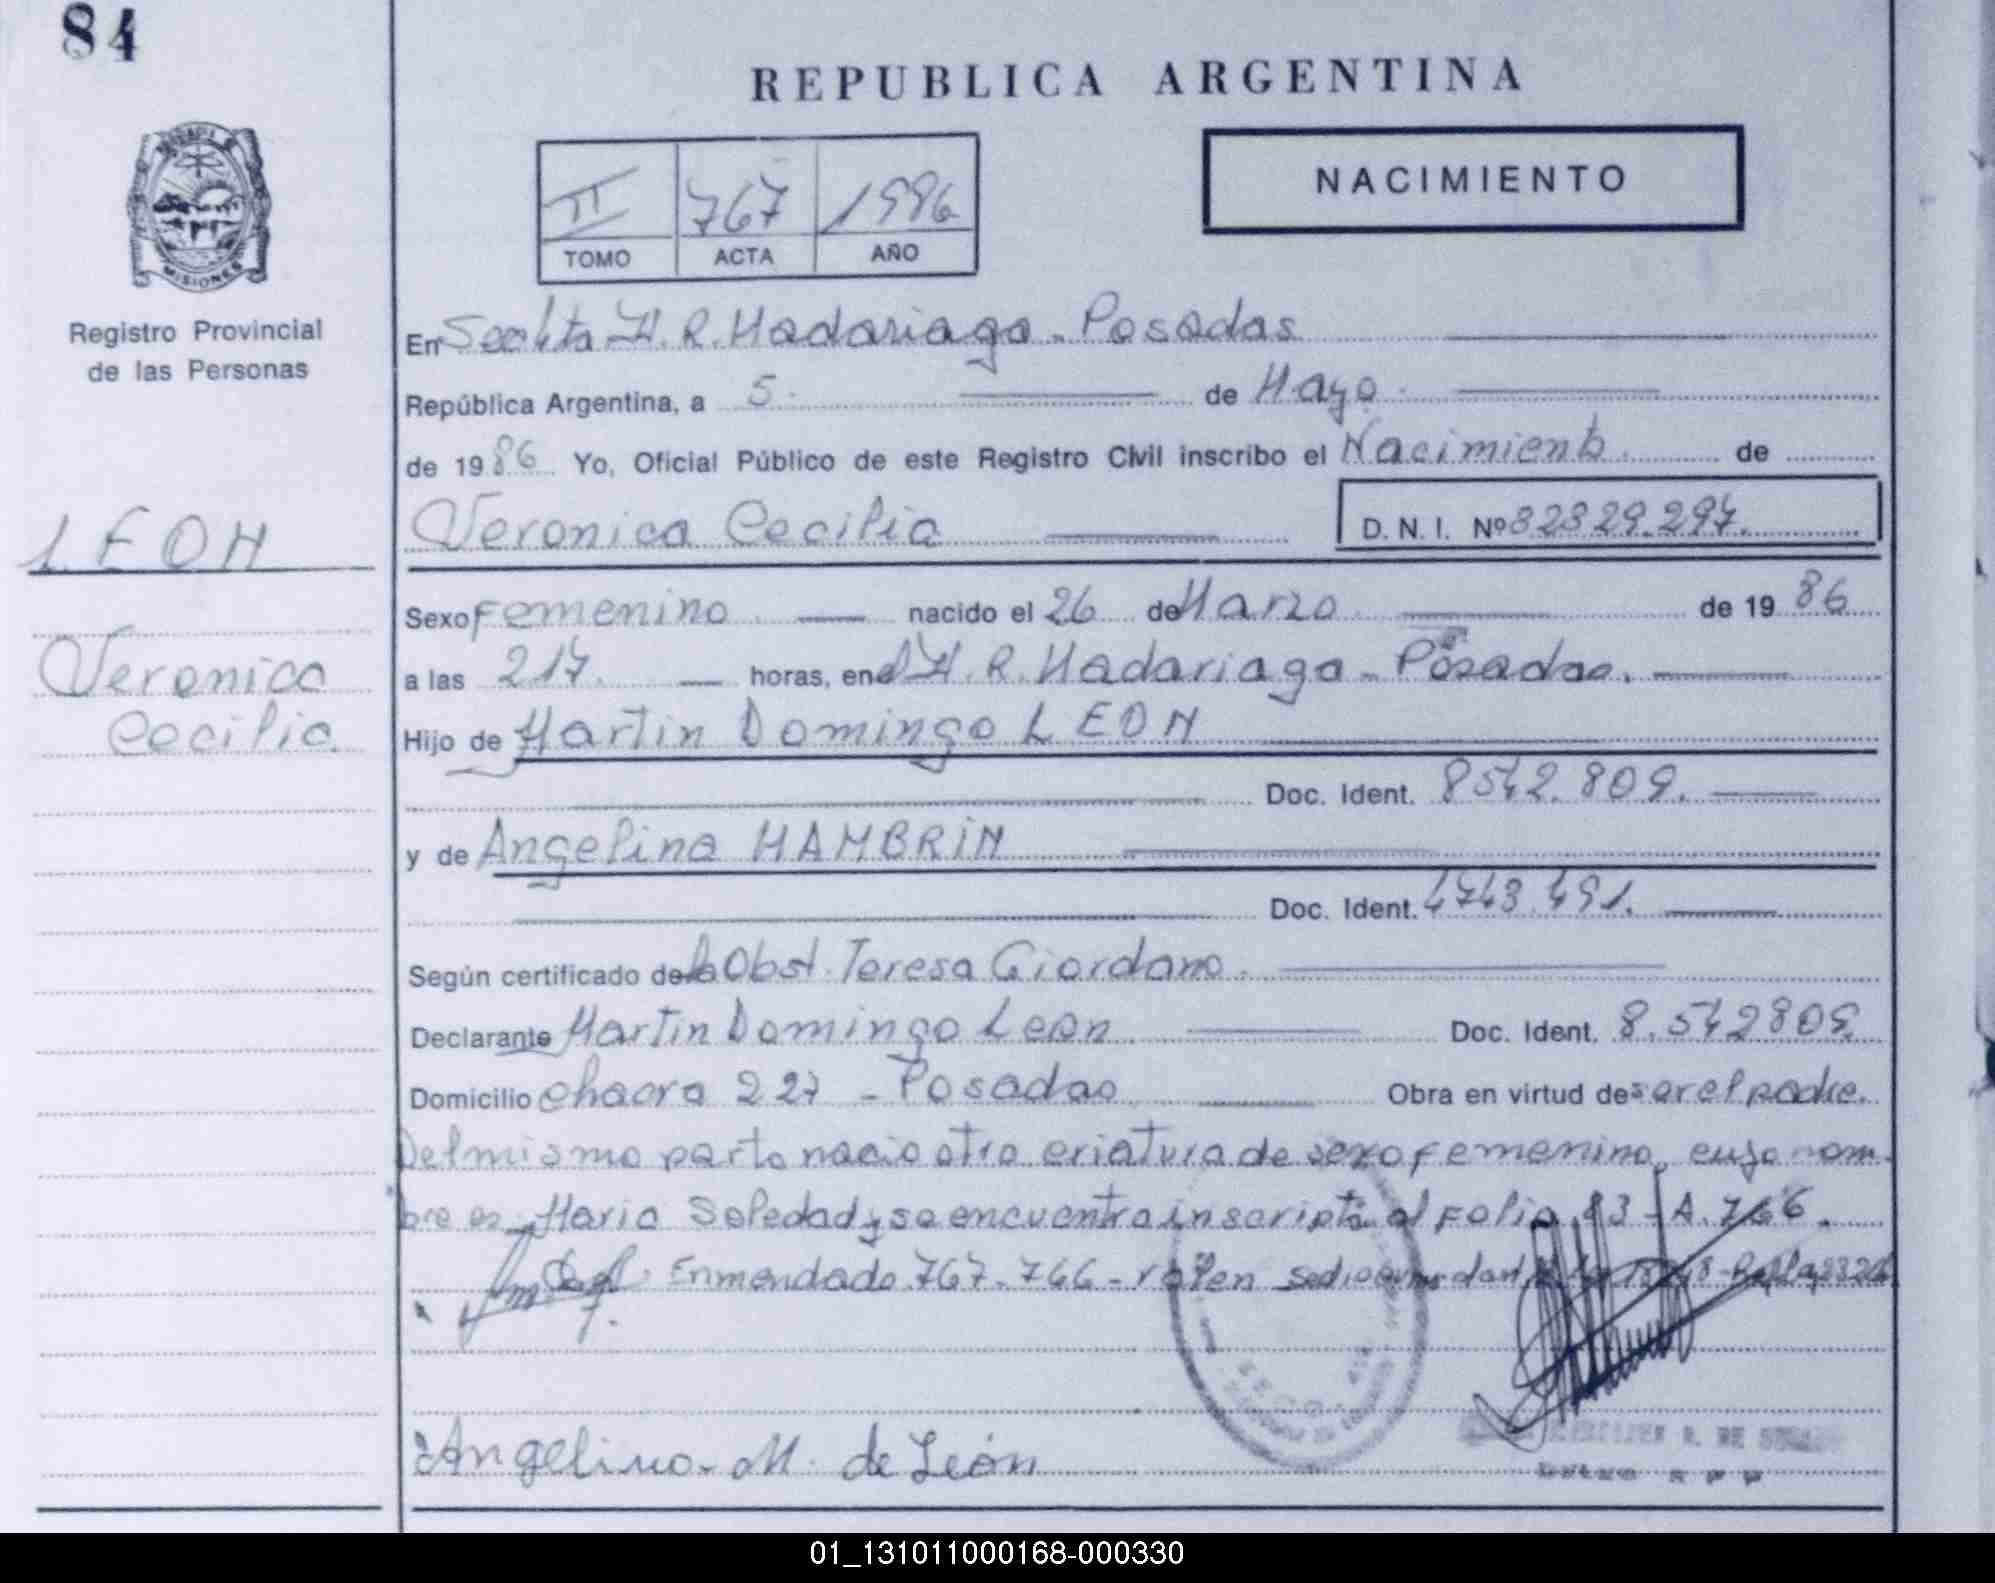 84
REPUBLICA ARGENTINA
NACIMIENTO
II 767 1986
TOMO ACTA AÑO
MISIONES
Registro Provincial
de las Personas
En H. R. Madariaga - Posadas
República Argentina, a 5 de Mayo
de 1986 Yo, Oficial Público de este Registro Civil inscribo el Nacimiento de
LEON
Veronica Cecilia D. N. I. Nº 32329.297.
Sexo Femenino nacido el 26 de Marzo de 1986
Veronica
Cecilia
a las 217. horas, en el H. R. Madariaga - Posadas.
Hijo de Martin Domingo LEON
Doc. Ident. 8542.809.
y de Angelina MAMBRIN
Doc. Ident. 4743.491.
Según certificado de la Obst. Teresa Giordano.
Declarante Martin Domingo Leon Doc. Ident. 8.542809
Domicilio chacra 227 - Posadas Obra en virtud de ser el padre.
Del mismo parto nacio otra criatura de sexo femenino, cuyo nom-
bre es Maria Soledad y se encuentra inscripta al Folio 83 - A. 766.
Enmendado 767-766 - valen
Angelina M. de León
01_131011000168-000330